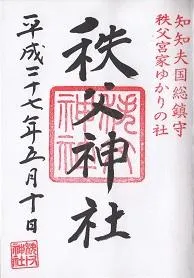 知知夫国総鎮守
秩父宮家ゆかりの社
秩父神社
平成二十七年五月十日
秩父神社